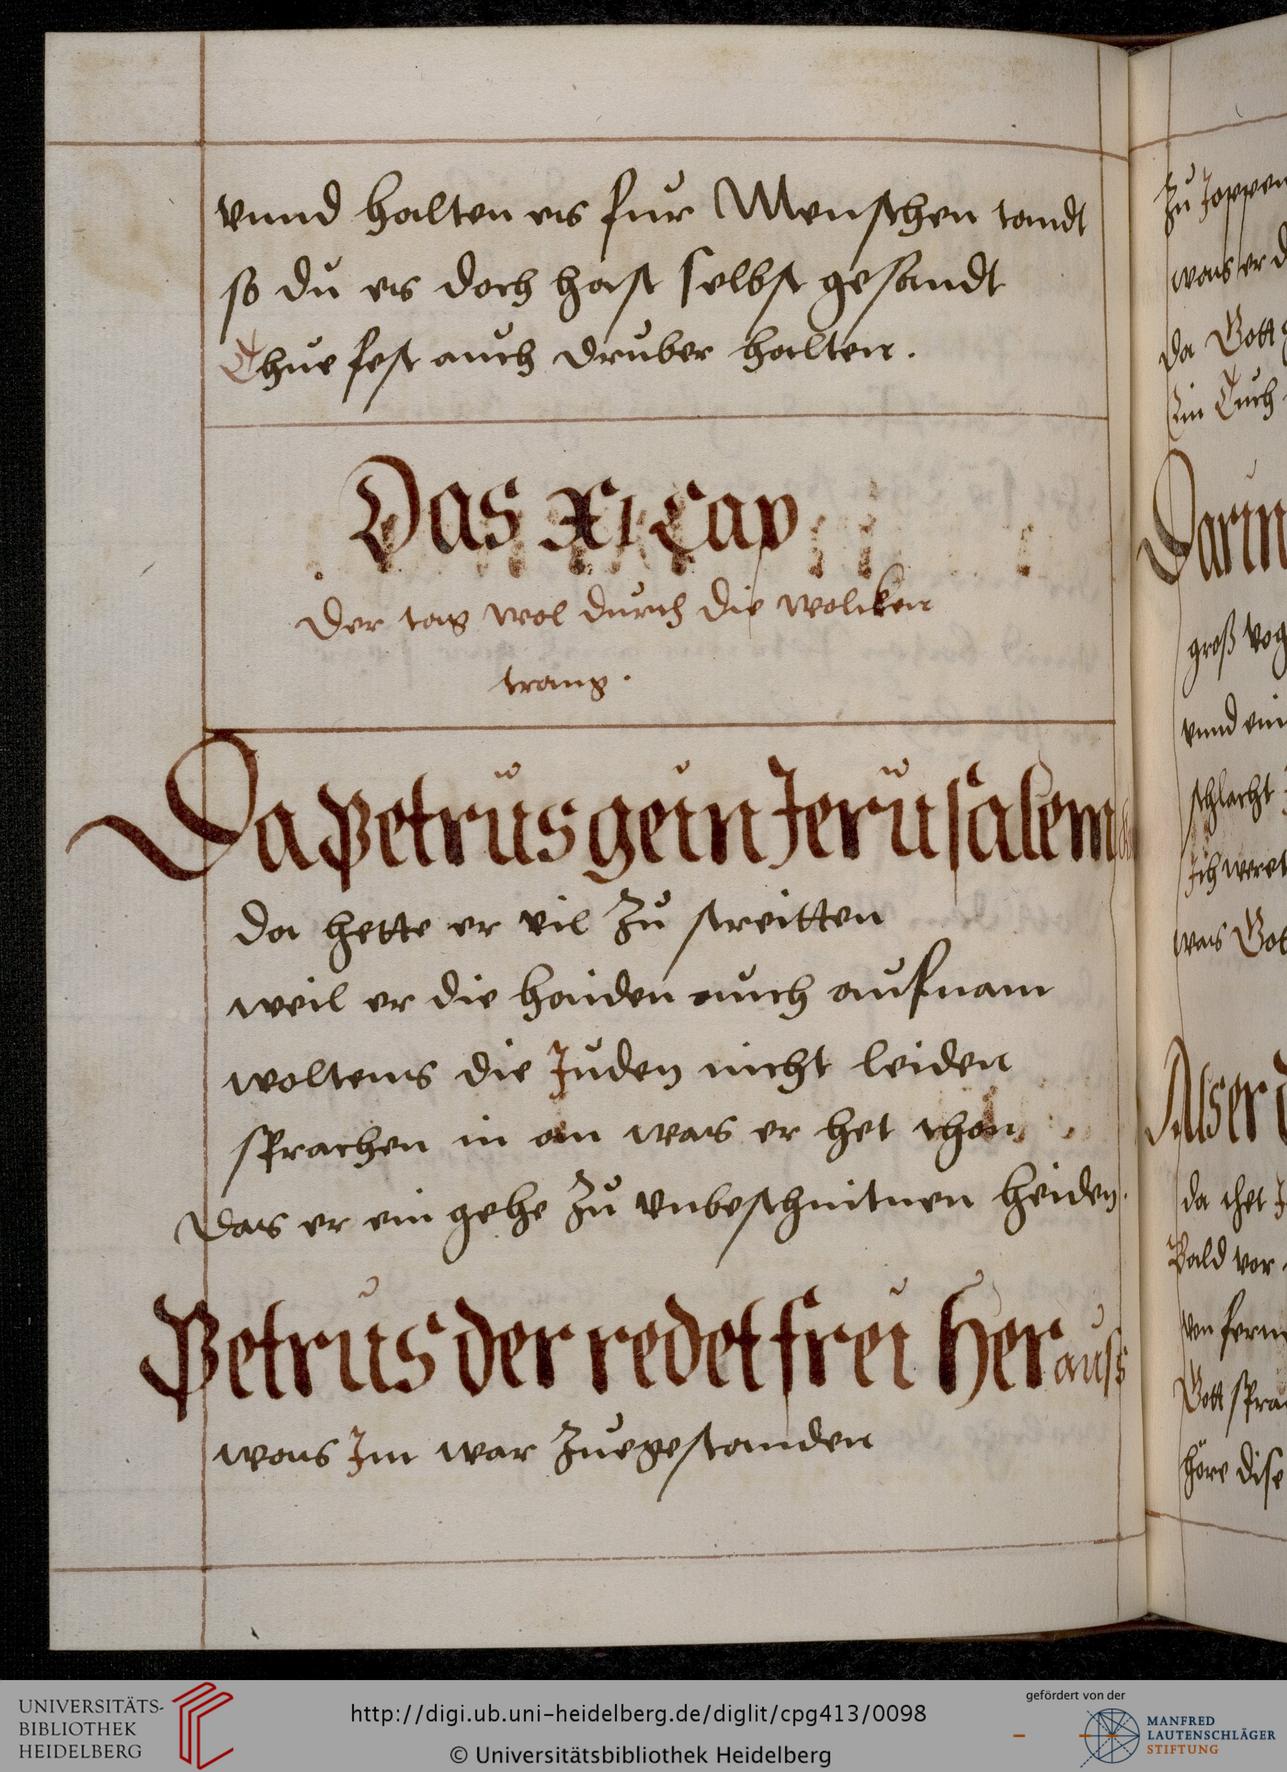 vnnd halten es fur Menschen tandt
so du es doch hast selbst gesandt
Thue fest auch druber halten.
Das XI Cap
Der tag wol durch die wolcken
trang.
Da Petrus gein Jerusalem
da hette er vil zu streitten
weil er die haiden auch aufnam
woltens die Juden nicht leiden
sprachen in an was er het
Das er ein gehe zu vnbeschnitnen heiden.
Petrus der redet frei herauss
was Im war zuegestanden
zu Joppen
was er
da Gott
Ein Tuch
Darin
groß vog
vnnd ein
schlacht
Ich
was Got
Als er
da
Bald vor
von fern
Gott spra
höre dise
UNIVERSITÄTS-
BIBLIOTHEK
HEIDELBERG
http://digi.ub.uni-heidelberg.de/diglit/cpg413/0098
© Universitätsbibliothek Heidelberg
gefördert von der
MANFRED
LAUTENSCHLÄGER
STIFTUNG